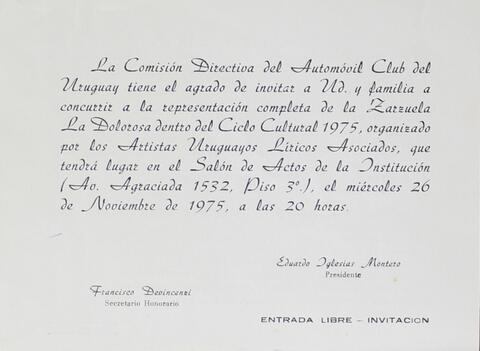 La Comisión Directiva del Automóvil Club del
Uruguay tiene el agrado de invitar a Ud. y familia a
concurrir a la representación completa de la Zarzuela
La Dolorosa dentro del Ciclo Cultural 1975, organizado
por los Artistas Uruguayos Líricos Asociados, que
tendrá lugar en el Salón de Actos de la Institución
(Av. Agraciada 1532, Piso 3º.), el miércoles 26
de Noviembre de 1975, a las 20 horas.
Eduardo Iglesias Montero
Presidente
Francisco Devincenzi
Secretario Honorario
ENTRADA LIBRE - INVITACION